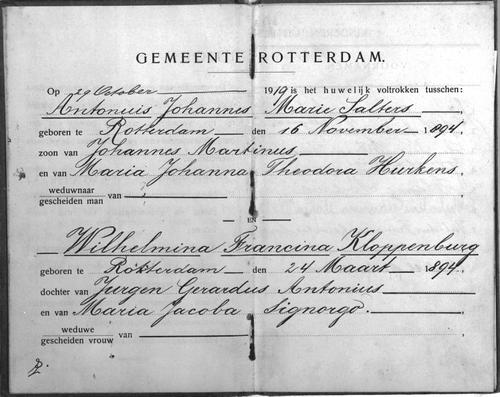 GEMEENTE ROTTERDAM.
Op 29 October 1919 is het huwelijk voltrokken tusschen:
Antonius Johannes Marie Salters
geboren te Rotterdam den 16 November 1894.
zoon van Johannes Martinus
en van Maria Johanna Theodora Hurkens.
weduwnaar
gescheiden man van
EN
Wilhelmina Francina Kloppenburg
geboren te Rotterdam den 24 Maart 1894.
dochter van Jurgen Gerardus Antonius
en van Maria Jacoba Signorgo.
weduwe
gescheiden vrouw van